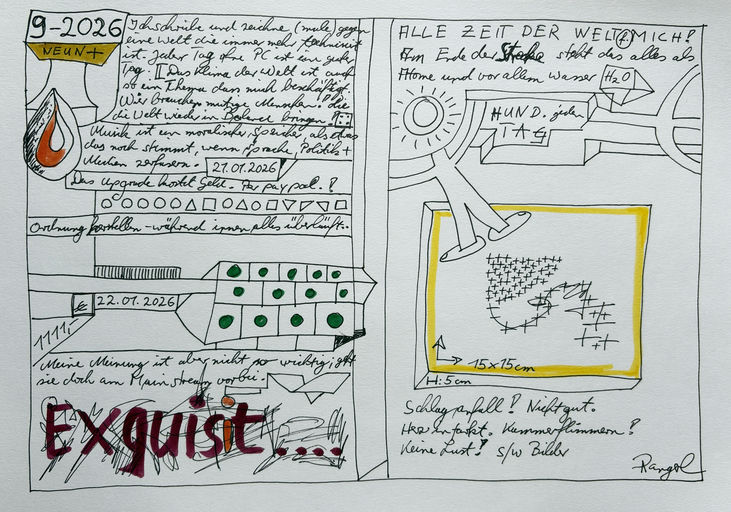 9-2026
NEUN+
Ich schreibe und zeichne (male) gegen
eine Welt die immer mehr technisiert
ist. Jeder Tag ohne PC ist ein guter
Tag. Das Klima der Welt ist auch
so ein Thema dass mich beschäftigt.
Wir brauchen mutige Menschen. die
die Welt wieder in Balance bringen!
Musik ist ein moralischer Speicher als etwas
das noch stimmt, wenn Sprache, Politik +
Medien zerfasern.
21.01.2026
Das Upgrade kostet Geld. Per paypal.!
Ordnung herstellen - während innen alles überläuft..
22.01.2026
1111,-
Meine Meinung ist aber nicht so wichtig, geht
sie doch am Mainstream vorbei.
Exquist....
ALLE ZEIT DER WELT + MICH!
Am Ende der Straße steht das alles als
Home und vor allem Wasser H2O
HUND. jeden
TAG
15x15cm
H: 5cm
Schlaganfall! Nicht gut.
Herzinfarkt. Kammerflimmern?
Keine Lust! s/w Bilder
Rangol